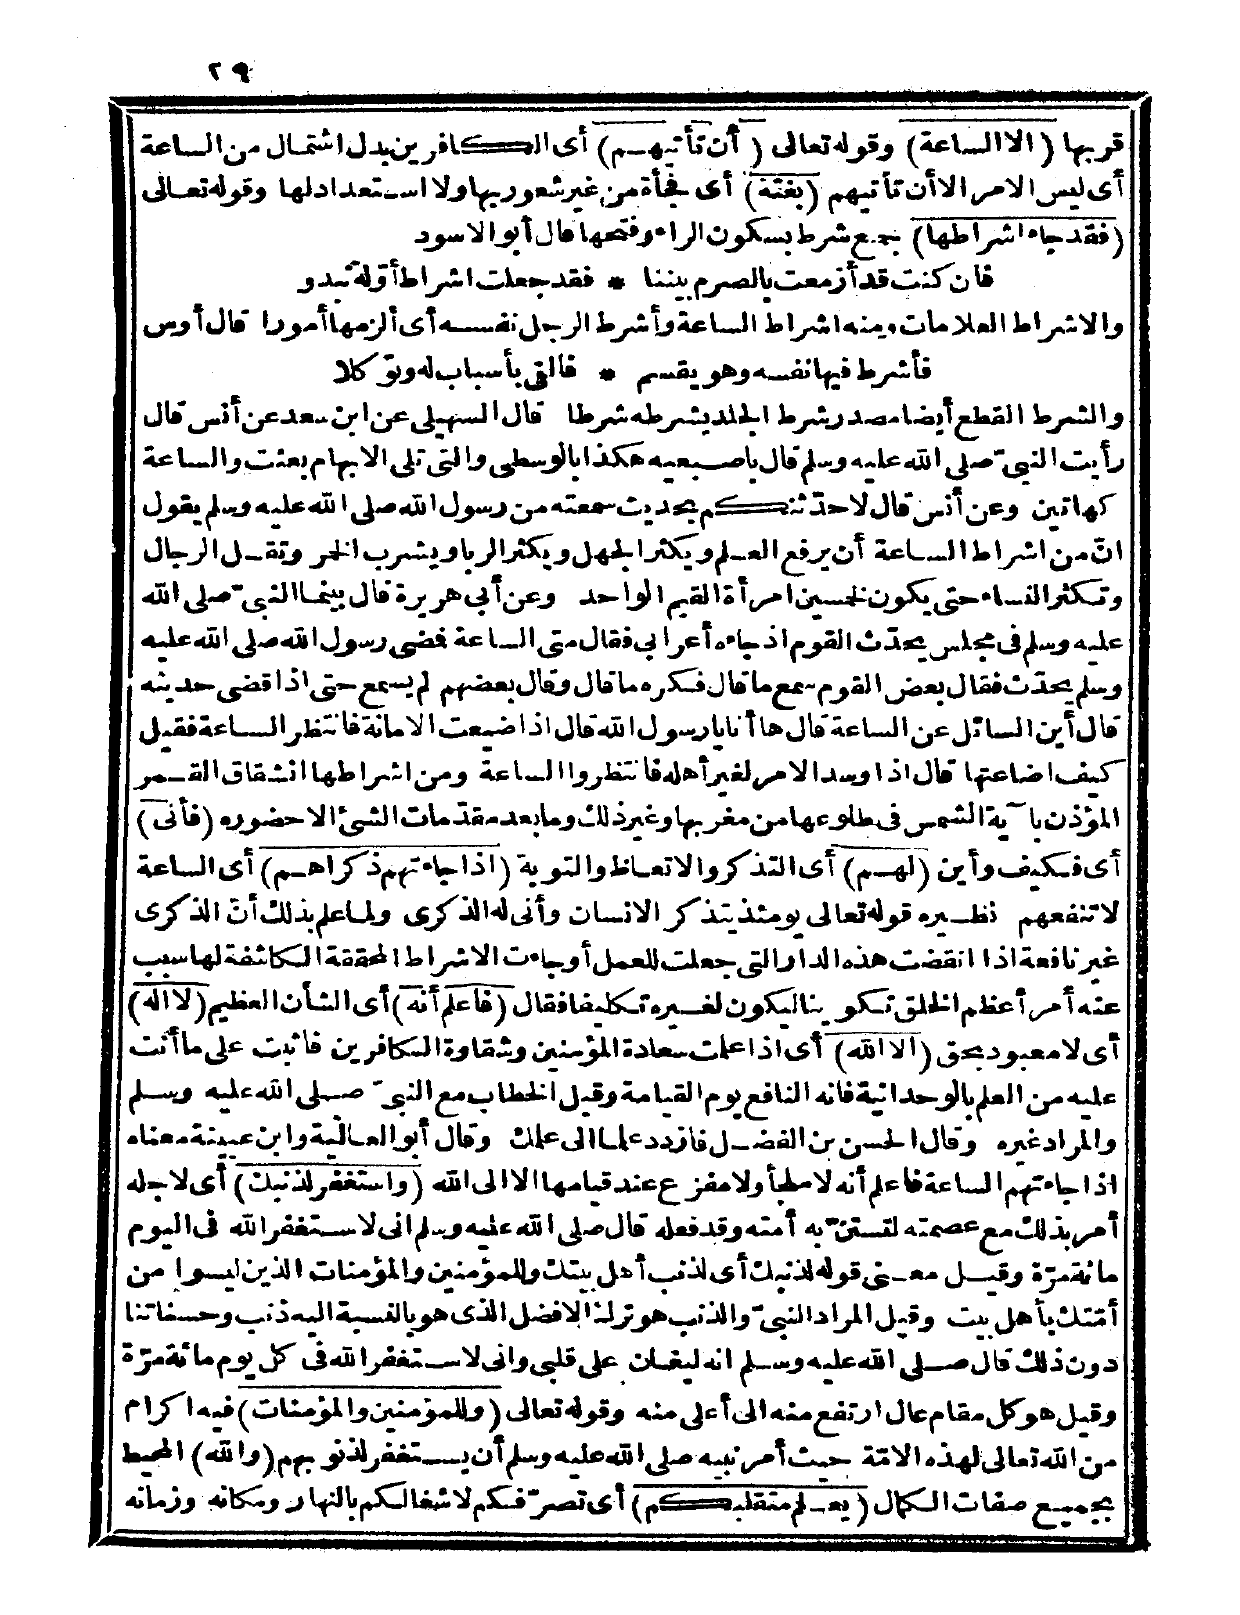 ٢٩
قربها (الا الساعة) وقوله تعالى (أن تأتيهم) أى الكافرين بدل اشتمال من الساعة
أى ليس الامر الا أن تأتيهم (بغتة) أى فجأة من غير شعور بها ولا استعداد لها وقوله تعالى
(فقد جاء اشراطها) جمع شرط بسكون الراء وفتحها قال أبو الاسود
فان كنت قد أزمعت بالصرم بيننا * فقد جعلت اشراط أوّله تبدو
والاشراط العلامات ومنه اشراط الساعة وأشرط الرجل نفسه أى ألزمها أمورا قال أوس
فأشرط فيها نفسه وهو يقسم * فالقى بأسباب له وتوكلا
والشرط القطع أيضا مصدر شرط الجلد يشرطه شرطا قال السهيلى عن ابن سعد عن أنس قال
رأيت النبىّ صلى الله عليه وسلم قال باصبعيه هكذا بالوسطى والتى تلى الابهام بعثت والساعة
كهاتين وعن أنس قال لاحدّثنكم بحديث سمعته من رسول الله صلى الله عليه وسلم يقول
انّ من اشراط الساعة أن يرفع العلم ويكثر الجهل ويكثر الربا ويشرب الخمر وتقل الرجال
وتكثر النساء حتى يكون لخمسين امرأة القيم الواحد وعن أبى هريرة قال بينما النبىّ صلى الله
عليه وسلم فى مجلس يحدّث القوم اذ جاءه أعرابى فقال متى الساعة فمضى رسول الله صلى الله عليه
وسلم يحدّث فقال بعض القوم سمع ما قال فكره ما قال وقال بعضهم لم يسمع حتى اذا قضى حديثه
قال أين السائل عن الساعة قال ها أنا يا رسول الله قال اذا ضيعت الامانة فانتظر الساعة فقيل
كيف اضاعتها قال اذا وسد الامر لغير أهله فانتظروا الساعة ومن اشراطها انشقاق القمر
المؤذن بآية الشمس فى طلوعها من مغربها وغير ذلك وما بعد مقدّمات الشئ الا حضوره (فأنى)
أى فكيف وأين (لهم) أى التذكر والاتعاظ والتوبة (اذا جاءتهم ذكراهم) أى الساعة
لا تنفعهم نظيره قوله تعالى يومئذ يتذكر الانسان وأنى له الذكرى ولما علم بذلك أنّ الذكرى
غير نافعة اذا انقضت هذه الدار التى جعلت للعمل أو جاءت الاشراط المحققة الكاشفة لها سبب
عنه أمر أعظم الخلق تكوينا ليكون لغيره تكليفا فقال (فاعلم أنه) أى الشأن العظيم (لا اله)
أى لا معبود بحق (الا الله) أى اذا علمت سعادة المؤمنين وشقاوة الكافرين فاثبت على ما أنت
عليه من العلم بالوحدانية فانه النافع يوم القيامة وقيل الخطاب مع النبىّ صلى الله عليه وسلم
والمراد غيره وقال الحسن بن الفضل فازدد علما الى علمك وقال أبو العالية وابن عيينة معناه
اذا جاءتهم الساعة فاعلم أنه لا ملجأ ولا مفزع عند قيامها الا الى الله (واستغفر لذنبك) أى لاجله
أمر بذلك مع عصمته لتستنّ به أمته وقد فعله قال صلى الله عليه وسلم انى لاستغفر الله فى اليوم
مائة مرّة وقيل معنى قوله لذنبك أى لذنب أهل بيتك وللمؤمنين والمؤمنات الذين ليسوا من
أمّتك بأهل بيت وقيل المراد النبىّ والذنب هو ترك الافضل الذى هو بالنسبة اليه ذنب وحسناتنا
دون ذلك قال صلى الله عليه وسلم انه ليغان على قلبى وانى لاستغفر الله فى كل يوم مائة مرّة
وقيل هو كل مقام عال ارتفع منه الى أعلى منه وقوله تعالى (وللمؤمنين والمؤمنات) فيه اكرام
من الله تعالى لهذه الامّة حيث أمر نبيه صلى الله عليه وسلم أن يستغفر لذنوبهم (والله) المحيط
بجميع صفات الكمال (يعلم متقلبكم) أى تصرّفكم لاشغالكم بالنهار ومكانه وزمانه